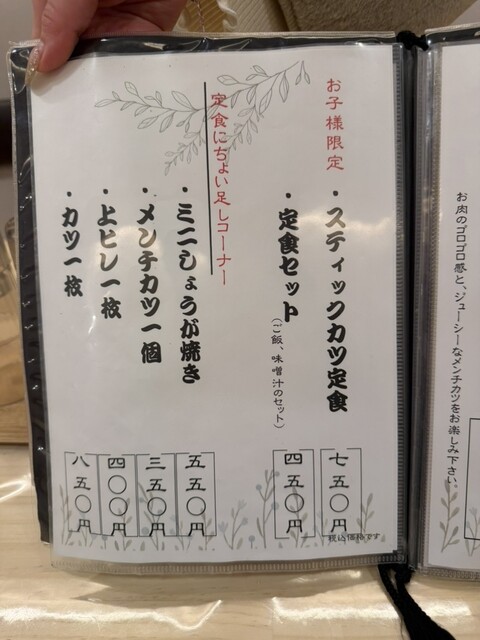 お肉のゴロゴロ感と、ジューシーなメンチカツをお楽しみ下さい。
お子様限定
・スティックカツ定食
七五〇円
・定食セット(ご飯、味噌汁のセット)
四五〇円
定食にちょい足しコーナー
・ミニしょうが焼き
五五〇円
・メンチカツ一個
三五〇円
・上ヒレ一枚
四〇〇円
・カツ一枚
八五〇円
税込価格です